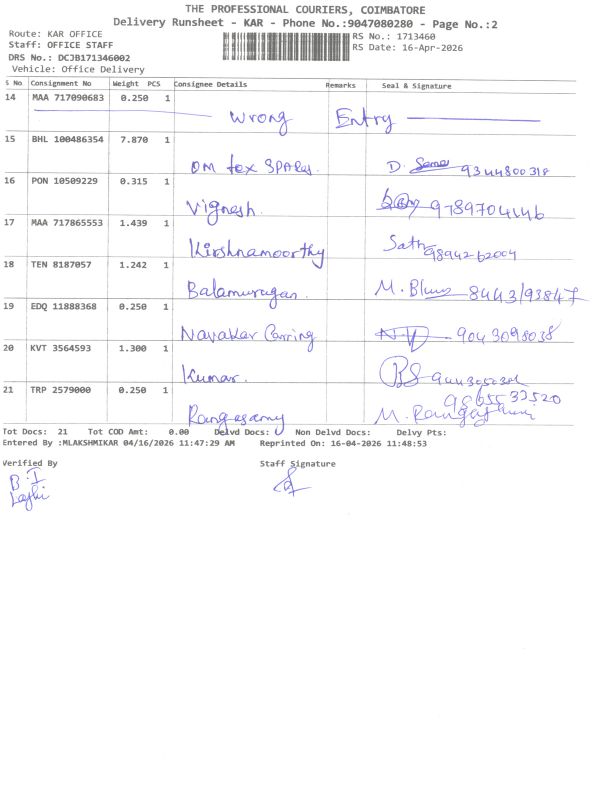 THE PROFESSIONAL COURIERS, COIMBATORE
Delivery Runsheet - KAR - Phone No.:9047080280 - Page No.:2
Route: KAR OFFICE
Staff: OFFICE STAFF
DRS No.: DCJB171346002
Vehicle: Office Delivery
RS No.: 1713460
RS Date: 16-Apr-2026
S No Consignment No Weight PCS Consignee Details Remarks Seal & Signature
14 MAA 717090683 0.250 1
Wrong Entry
15 BHL 100486354 7.870 1
OM tex SPARes. D. 9344800318
16 PON 10509229 0.315 1
Vignesh. 9789704446
17 MAA 717865553 1.439 1
Kirshnamoorthy Sath 9894262004
18 TEN 8187057 1.242 1
Balamurugan. M. 8443/93847
19 EDQ 11888368 0.250 1
9043098038
20 KVT 3564593 1.300 1
Kumar.
21 TRP 2579000 0.250 1
9865533520
Rangasamy M.
Tot Docs: 21 Tot COD Amt: 0.00 Delvd Docs: Non Delvd Docs: Delvy Pts:
Entered By :MLAKSHMIKAR 04/16/2026 11:47:29 AM Reprinted On: 16-04-2026 11:48:53
Verified By Staff Signature